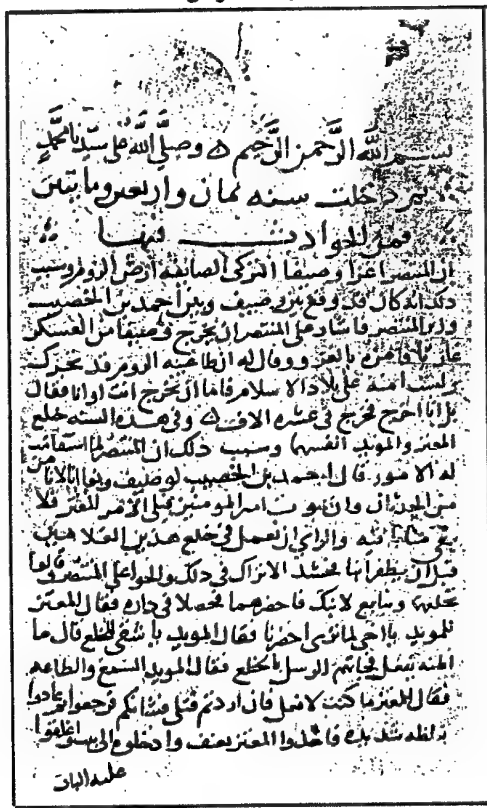 بسم الله الرحمن الرحيم ه وصلى الله على سيدنا محمد
ثم دخلت سنه ثمان واربعين ومايتين
فمن الحوادث فيها
ان المنتصر اغزا وصيفا التركى الصائفه ارض الروم وسبب
ذلك انه كان قد وقع بين وصيف وبين احمد بن الخصيب
وزير المنتصر فاشار على المنتصر ان يخرج وصيفا من العسكر
غازيا فامره بالغزو وقال له ان طاغيه الروم قد تحرك
ولست امنه على بلاد الاسلام فاما ان تخرج انت او انا فقال
بل انا اخرج فخرج فى عشره الاف ه وفى هذه السنه خلع
المعتز والمويد انفسهما وسبب ذلك ان المنتصر لما استقامت
له الامور قال احمد بن الخصيب لوصيف وبغا انا لا نامن
الحدثان وان يموت امير المومنين فيلى الامر المعتز فلا
يبقى منا والراى ان نعمل فى خلع هذين الغلامين
قبل ان يظفرا بنا فجد الاتراك فى ذلك والحوا على المنتصر وقالوا
نخلعهما ونبايع لابنك فاحضرهما فجعلا فى دار فقال المعتز
للمويد يا اخى لم ترى احضرنا فقال المويد يا شقى للخلع قال ما
اظنه يفعل فجاتهم الرسل بالخلع فقال المويد السمع والطاعه
فقال المعتز ما كنت لافعل فان اردتم قتلى فشانكم فرجعوا ثم عادوا
بغلظه شديده فاخذوا المعتز بعنف وادخلوه الى بيت واغلقوا
عليه الباب